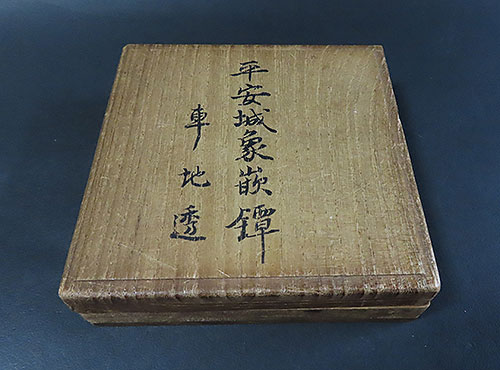 平安城象嵌鐔
車地透